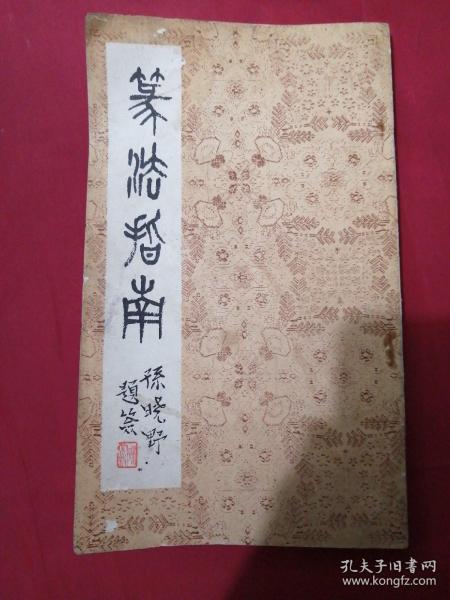 篆法指南
孫曉野
題簽
孔夫子旧书网
www.kongfz.com